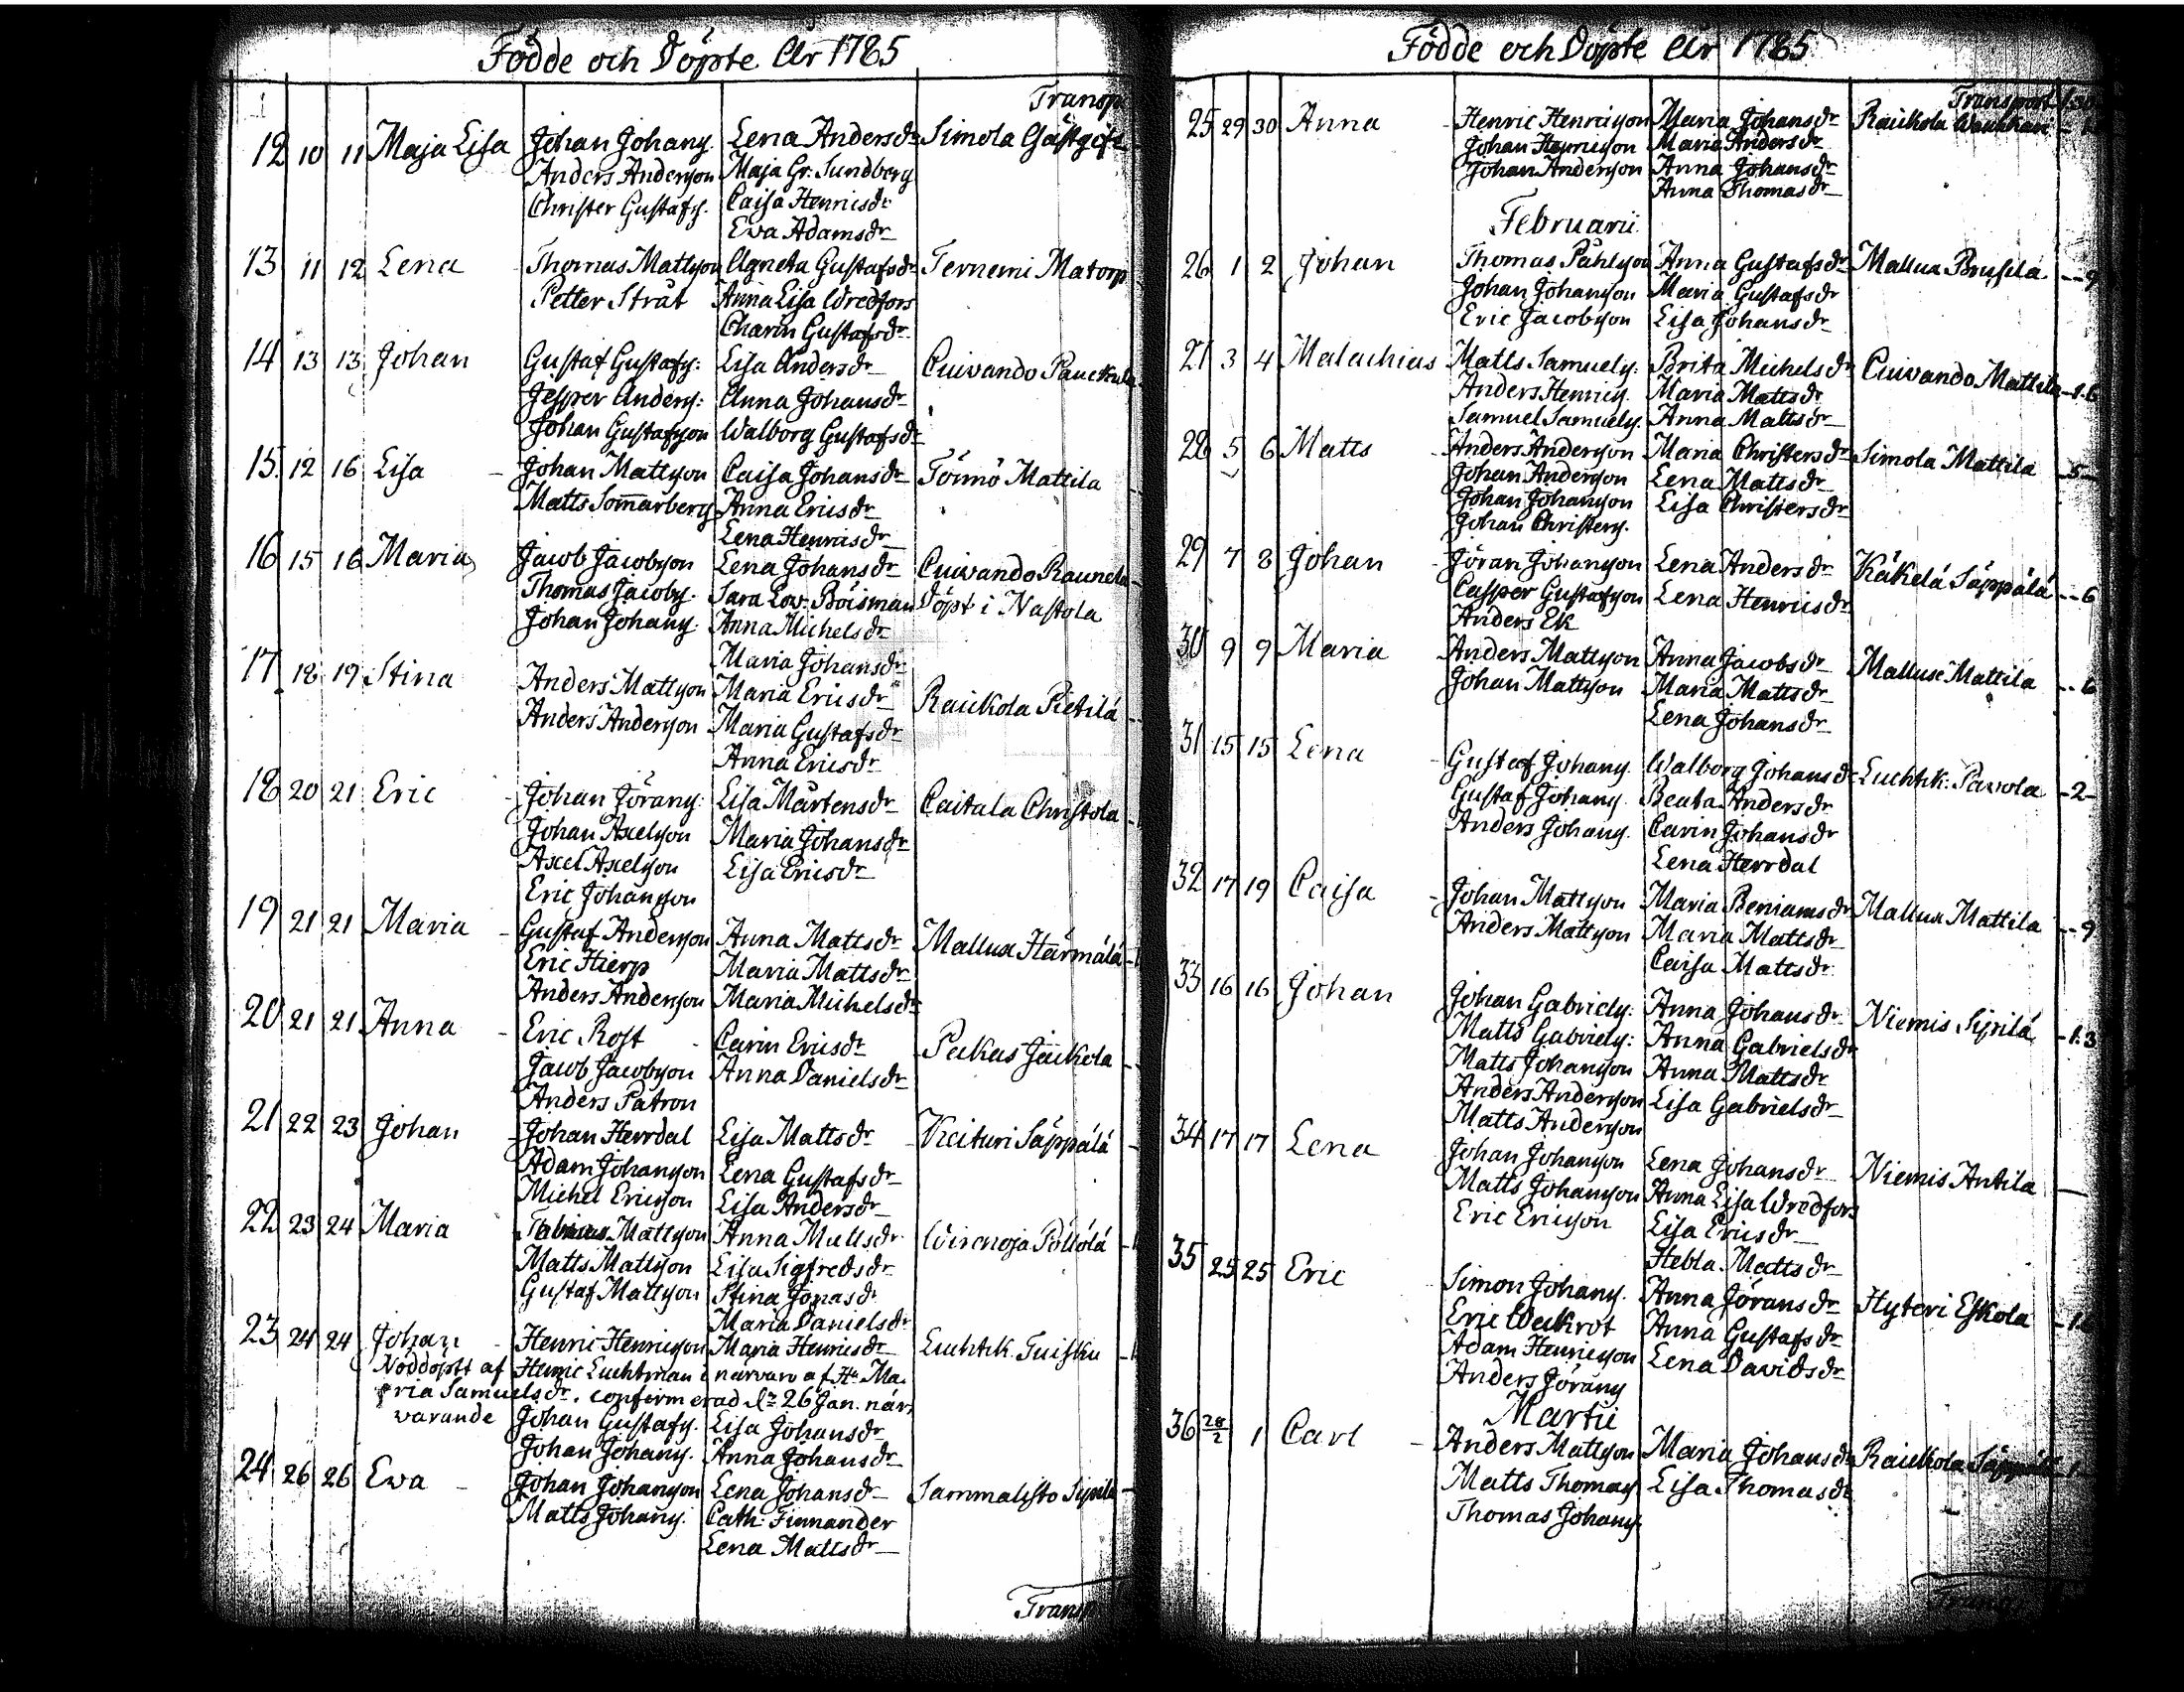 Födde och Döpte År 1785
Transp
12 10 11 Maja Lisa Johan Johans. Lena Andersdr Simola Gästgif
Anders Andersson Maja Gr: Sundberg
Christer Gustafs. Caisa Henricsdr
Ewa Adamsdr
13 11 12 Lena Thomas Mattsson Agneta Gustafsdr Ternemi Matorp
Petter Stråt Anna Lisa Wredfors
Charin Gustafsdr
14 13 13 Johan Gustaf Gustafs: Lisa Andersdr Cuivando
Jesper Anders: Anna Johansdr
Johan Gustafsson Walborg Gustafsdr
15. 12 16 Lisa Johan Mattsson Caisa Johansdr Törmö Mattila
Matts Som̅arberg Anna Ericsdr
Lena Henricsdr
16 15 16 Maria Jacob Jacobsson Lena Johansdr Cuivando Raunela
Thomas Jacobs. Sara Lov: Böisman Döpt i Nastola
Johan Johans. Anna Michelsdr
Maria Johansdr
17 18 19 Stina Anders Mattsson Maria Ericsdr Raickola Pietilä
Anders Andersson Maria Gustafsdr
Anna Ericsdr
18 20 21 Eric Johan Jörans: Lisa Mårtensdr Caitala Christola
Johan Axelsson Maria Johansdr
Axel Axelsson Lisa Ericsdr
Eric Johansson
19 21 21 Maria Gustaf Andersson Anna Mattsdr Mallusı Härmälä
Eric Hierp Maria Mattsdr
Anders Andersson Maria Michelsdr
20 21 21 Anna Eric Rost Carin Ericsdr Pakas Jaickola
Jacob Jacobsson Anna Danielsdr
Anders Patron
21 22 23 Johan Johan Herrdal Lisa Mattsdr Keituri Säppälä
Adam Johansson Lena Gustafsdr
Michel Ericsson Lisa Andersdr
22 23 24 Maria Tobias Mattsson Anna Mattsdr Wirenoja
Matts Mattsson Lisa Sigfredsdr
Gustaf Mattsson Stina Jonasdr
Maria Danielsdr
23 24 24 Johan Henric Henricsson Maria Henricsdr Luchtik. Tuisku
Nöddöptt af Henric Luchtman i närvaro af Hu Ma
ria Samuelsdr. confirmerad dn 26 Jan. när
varande Johan Gustafs. Lisa Johansdr
Johan Johans. Anna Johansdr
24 26 26 Ewa Johan Johansson Lena Johansdr Sammalisto Sipilä
Matts Johans. Cath: Finnander
Lena Mattsdr
Transp
Födde och Döpte År 1785
Transport
25 29 30 Anna Henric Henricsson Maria Johansdr Raickola
Johan Henricsson Maria Andersdr
Johan Andersson Anna Johansdr
Anna Thomasdr
Februarii
26 1 2 Johan Thomas Påhlsson Anna Gustafsdr Mallusı Brusila - - 9
Johan Johansson Maria Gustafsdr
Eric Jacobsson Lisa Johansdr
27 3 4 Malachias Matts Samuels: Brita Michelsdr Cuivando Mattila - 1.6
Anders Henrics. Maria Mattsdr
Samuel Samuels. Anna Mattsdr
28 5 6 Matts Anders Andersson Maria Christersdr Simola Mattila - 5 -
Johan Andersson Lena Mattsdr
Johan Johansson Lisa Christersdr
Johan Christers.
29 7 8 Johan Jöran Johansson Lena Andersdr Käkelä Säppälä - - 6
Casper Gustafsson Lena Henricsdr
Anders Ek
30 9 9 Maria Anders Mattsson Anna Jacobsdr Mallusı Mattila - - 6
Johan Mattsson Maria Mattsdr
Lena Johansdr
31 15 15 Lena Gustaf Johans. Walborg Johansdr Luchtik: Pavola - 2 -
Gustaf Johans. Beata Andersdr
Anders Johans. Carin Johansdr
Lena Herrdal
32 17 19 Caisa Johan Mattsson Maria Beniamsdr Mallusı Mattila - - 9
Anders Mattsson Maria Mattsdr
Caisa Mattsdr
33 16 16 Johan Johan Gabriels: Anna Johansdr Niemis Sipilä - 1.3
Matts Gabriels: Anna Gabrielsdr
Matts Johansson Anna Mattsdr
Anders Andersson Lisa Gabrielsdr
Matts Andersson
34 17 17 Lena Johan Johansson Lena Johansdr Niemis Antila
Matts Johansson Anna Lisa Wredfors
Eric Ericsson Lisa Ericsdr
Hebla Mattsdr
35 25 25 Eric Simon Johans. Anna Jöransdr Hyteri Eskola
Eric Weckrot Anna Gustafsdr
Adam Henricsson Lena Davidsdr
Anders Jörans
Martii
36 28/2 1 Carl Anders Mattsson Maria Johansdr Raickola Säppälä
Matts Thomas Lisa Thomasdr
Thomas Johans.
Transp